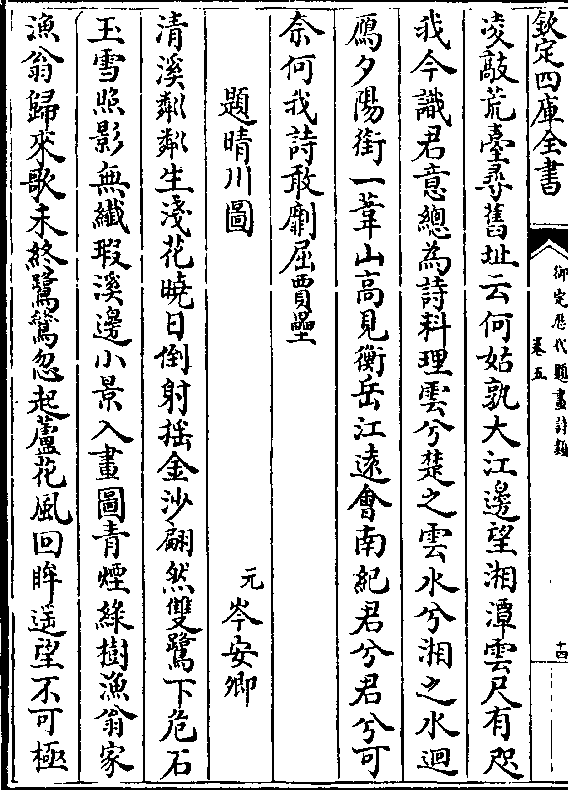 欽定四庫全書
御定歷代題畫詩類
卷五
十四
凌敲荒臺尋舊址云何姑孰大江邊望湘潭雲尺有咫
我今識君意總為詩料理雲兮楚之雲水兮湘之水迴
鴈夕陽街一葦山高見衡岳江遠會南紀君兮君兮可
奈何我詩敢劘屈賈壘
題晴川圖
元岑安卿
清溪粼粼生淺花曉日倒射揺金沙翩然雙鷺下危石
玉雪照影無纖瑕溪邊小景入畫圖青煙緑樹漁翁家
漁翁歸來歌未終鷺鶿忽起蘆花風回眸遥望不可極